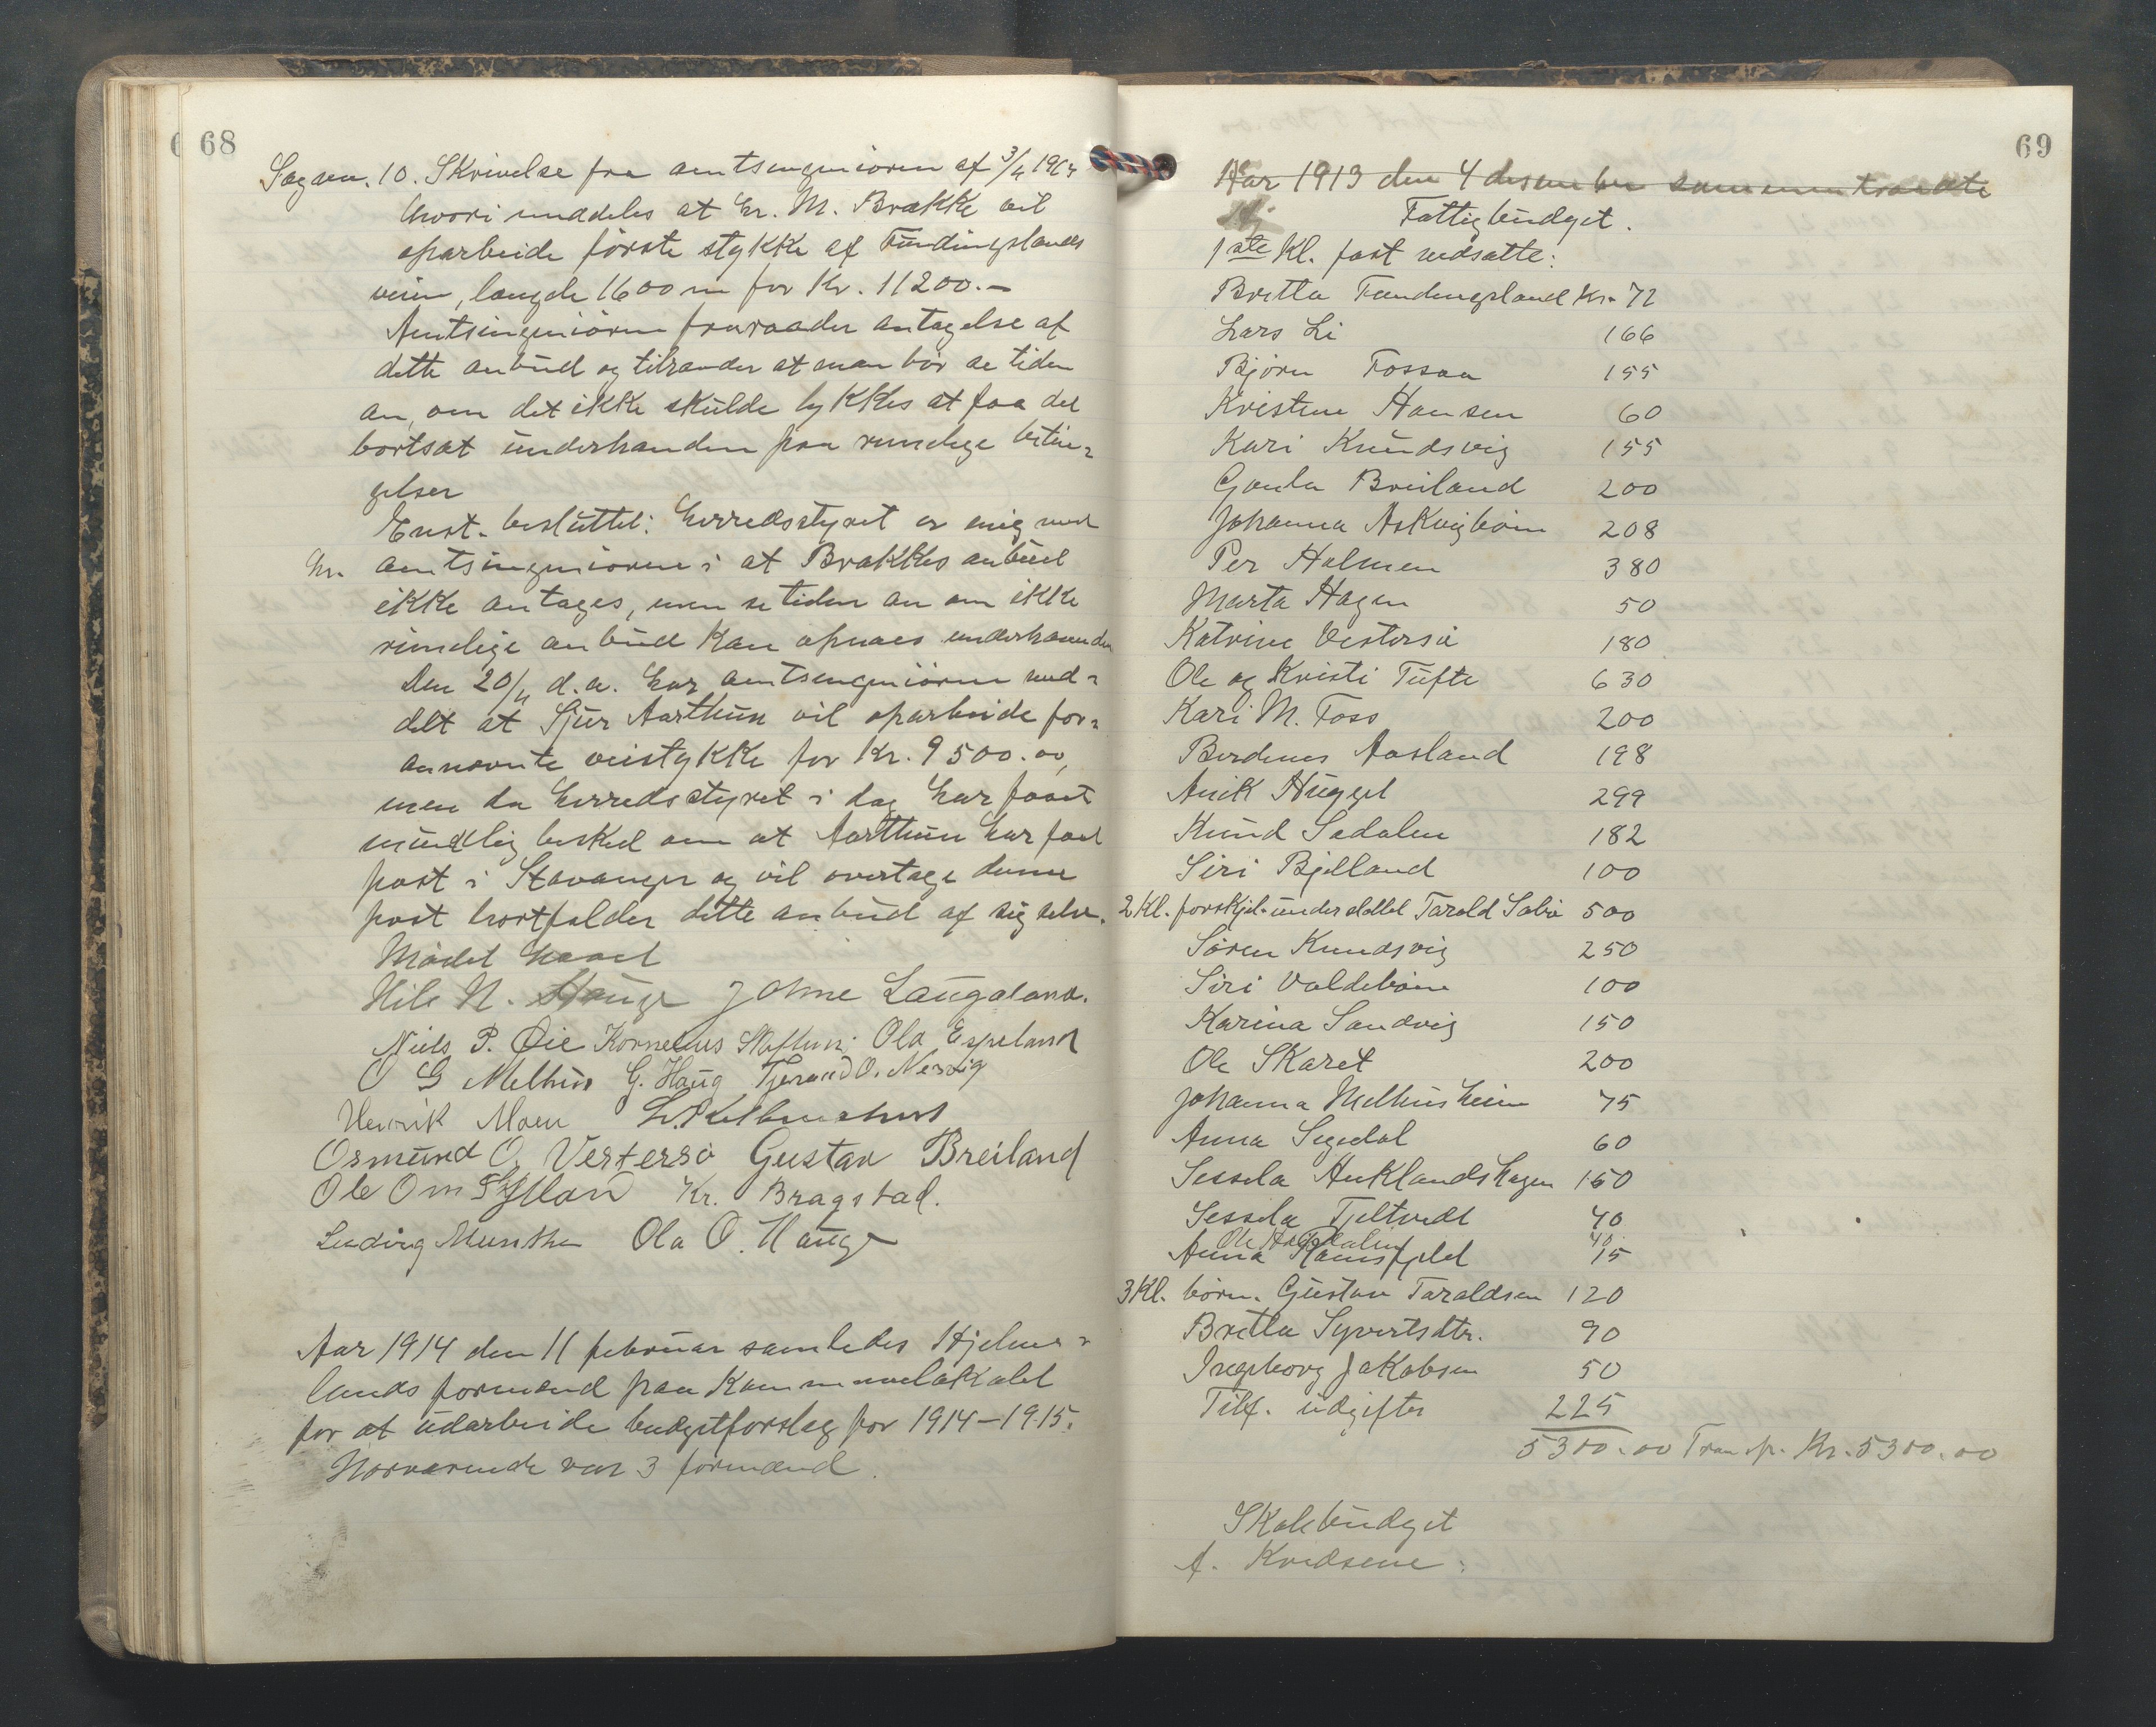 68
Sag nr. 10. Skrivelse fra amtsingeniøren af
hvori meddeles at hr. M. Brække vil
oparbeide første stykke af Fundingslands
veien, længde 1600 m for Kr. 11200.–
Amtsingeniøren fraraader antagelse af
dette anbud og tilraader at man bør se tiden
an, om det ikke skulde lykkes at faa det
bortsat underhaanden paa rimelige betin-
gelser
Enst. besluttet: Herredsstyret er enig med
hr. amtsingeniøren i at Brækkes anbud
ikke antages, men se tiden an om ikke
rimelige anbud kan opnaaes underhaanden
Den 20/11 d.a. har amtsingeniøren med-
delt at Sjur Aarthun vil oparbeide for-
annævnte veistykke for Kr. 9500.00,
men da herredsstyret i dag har faaet
mundlig besked om at Aarthun har faat
post i Stavanger og vil overtage denne
post bortfalder dette anbud af sig selv.
Mødet hævet
Nils N. Hauge Johne Laugaland.
Niels P. Øie Kornelius Ola Espeland
O G Melhus G. Haug Tjerand O. Nesvig
Henrik Moen
Osmund O. Vestersø Gustav Breiland
Ole Kr. Bragstad.
Ludvig Munthe Ola O. Hauge
Aar 1914 den 11 februar samledes Hjelme-
lands formænd paa Kommunelokalet
for at udarbeide budgetforslag for 1914–1915.
Nærværende var 3 formænd.
69
Aar 1913 den 4 desember sammentraadte
Fattigbudget.
1ste Kl. fast nedsatte:
Britta Fundingsland Kr. 72
Lars Li 166
Bjørn Fossaa 155
Kristine Hansen 60
Kari Knudsvig 155
Gaula Breiland 200
Johanna Askvigbøin 208
Per Holmen 380
Marta Hagen 50
Katrine Vestersø 180
Ole og Kristi Tufte 630
Kari M. Foss 200
Berdines Aasland 198
Anik 299
Knud Sedalen 182
Siri Bjelland 100
2 Kl. forskjel. understøttet Tarald Sabø 500
Søren Knudsvig 250
Siri Valdebøin 100
Karina Sandvig 150
Ole Skaret 200
Johanna Melhusheim 75
Anna Segedal 60
Sessela Auklandshagen 150
Sessela Tjeltvedt 40
Ole 40
Anna Ramsfjeld 15
3 Kl. børn. Gustav Taraldsen 120
Britta Syvertsdtr. 90
Ingeborg Jakobsen 50
Tilf. udgifter 225
5300.00 Transp. Kr. 5300.00
Skolebudget
A. Kredsene: